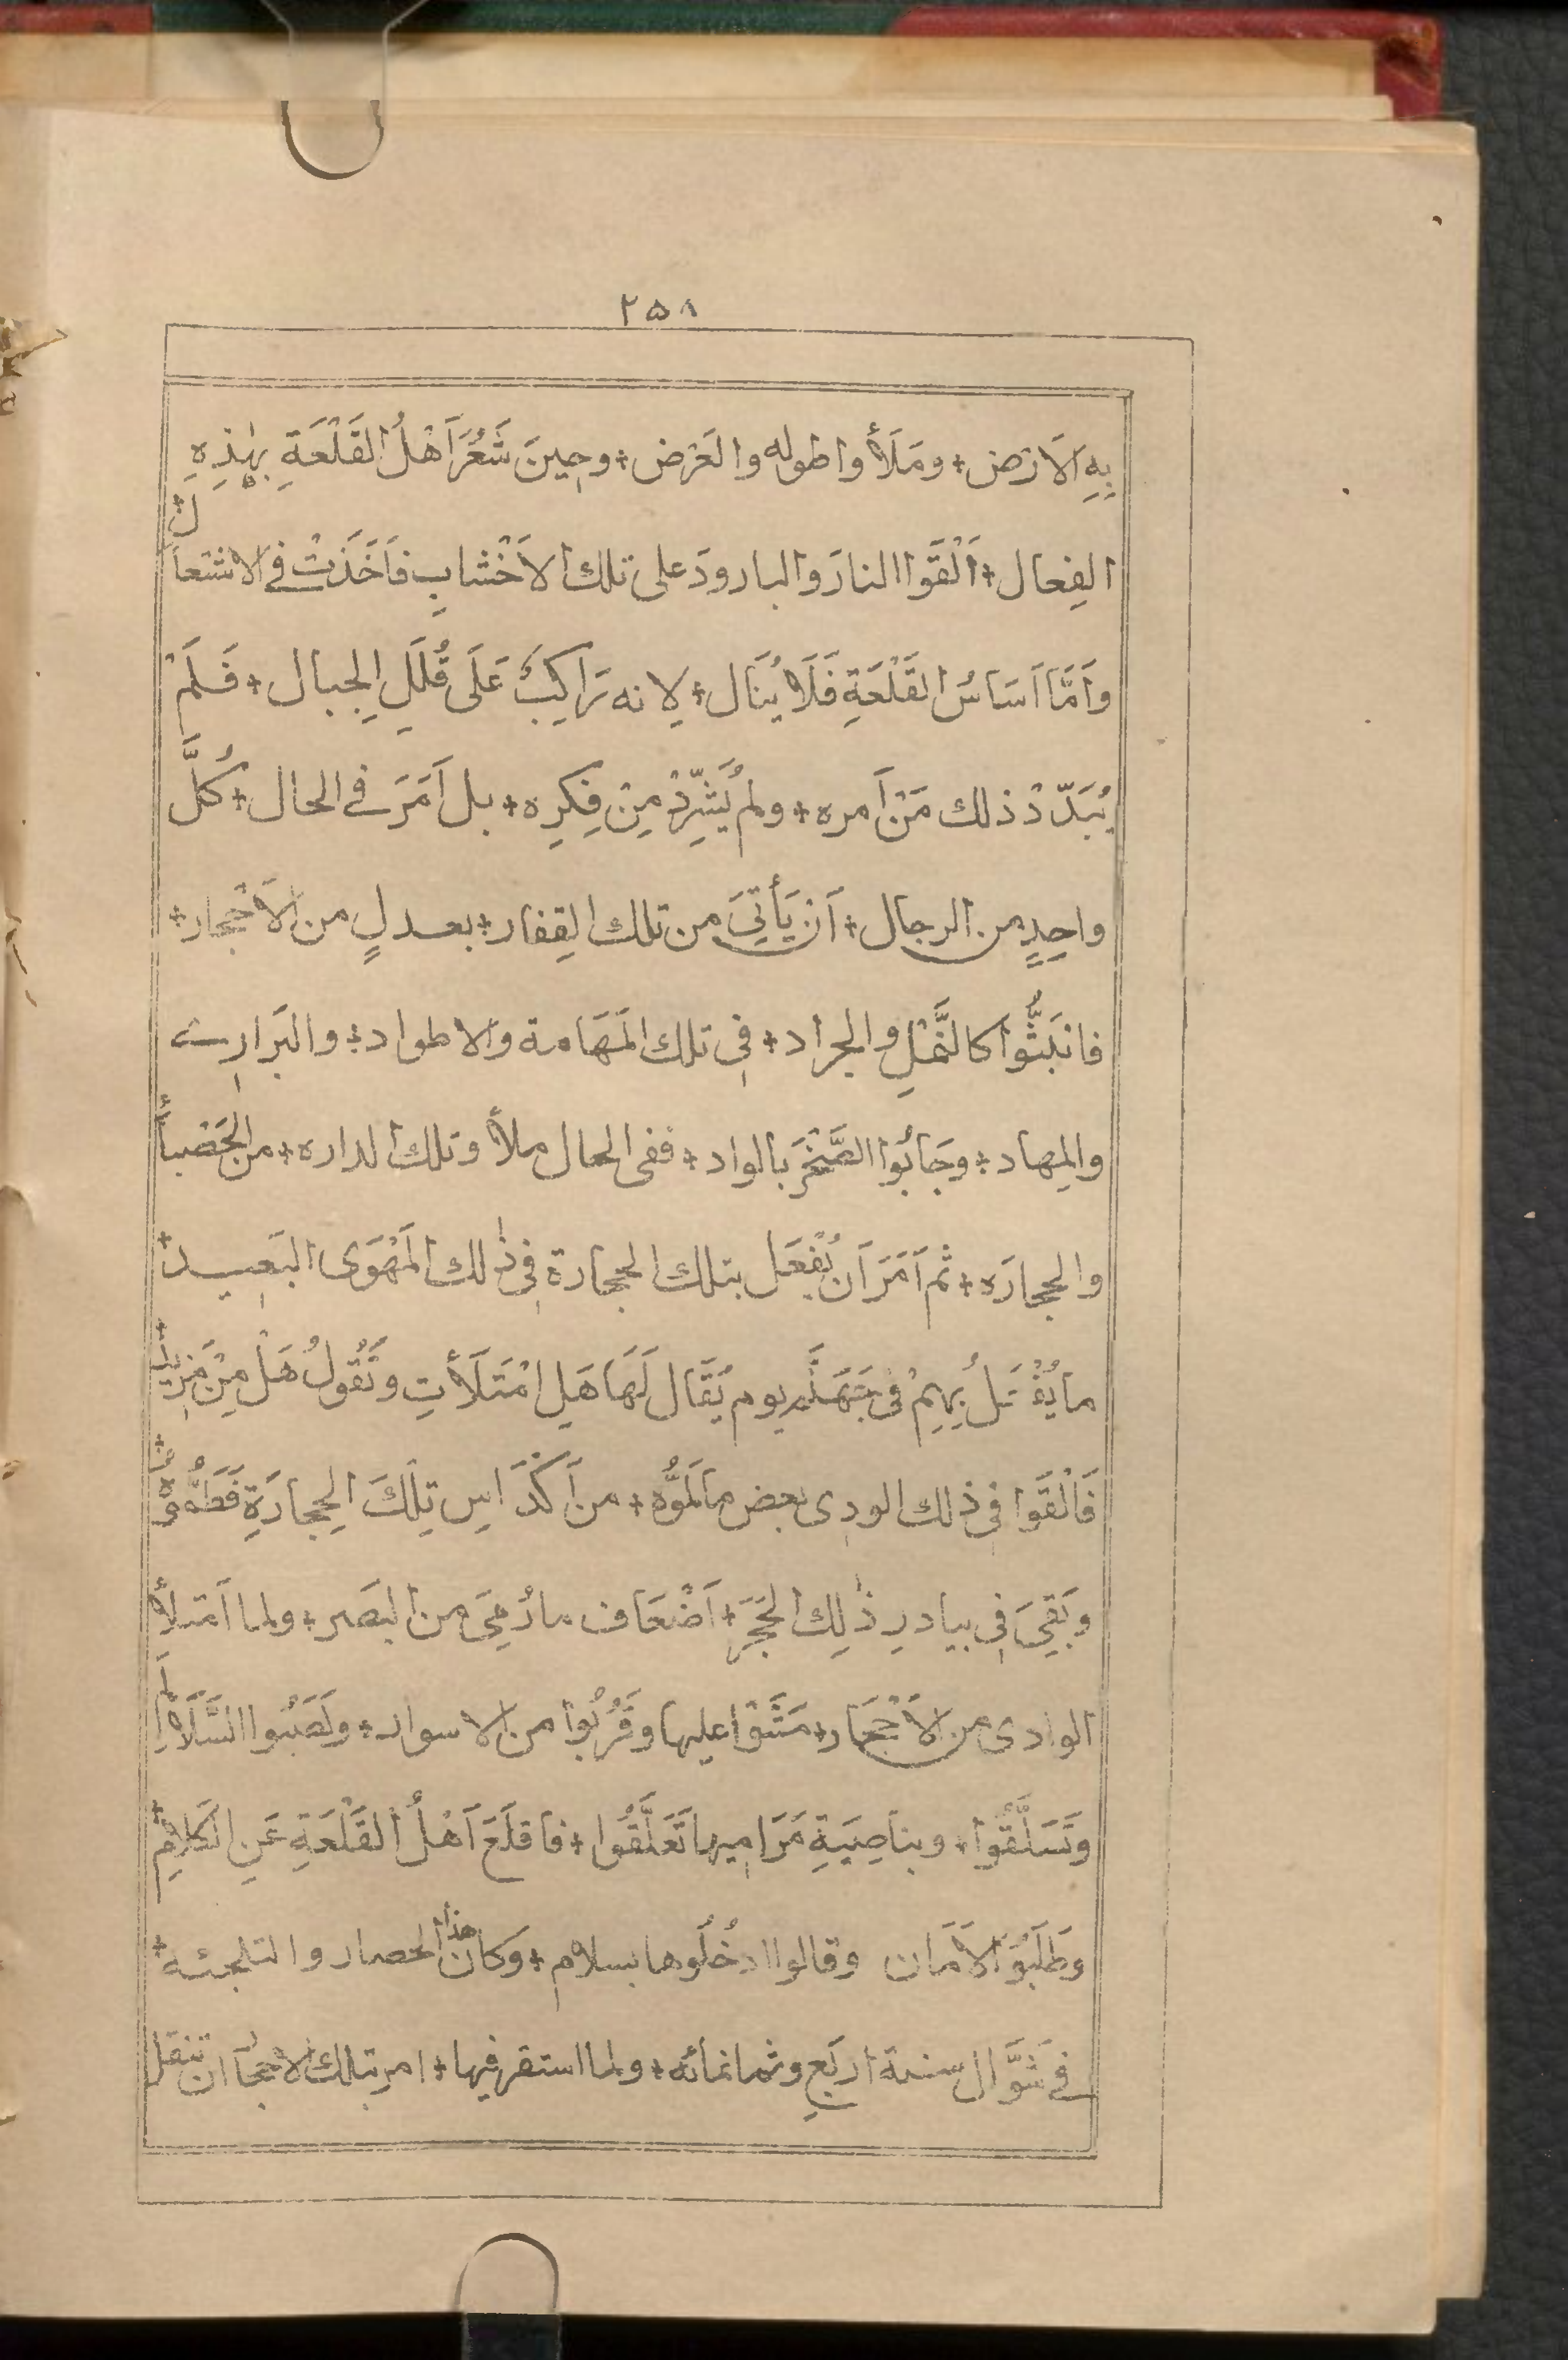 ٢٥٨
بِهِ الاَرْض + ومَلَأُوا طوله والعَرْض + وحِينَ شَعُرَ اَهْلُ القَلْعَةِ بِهٰذِهِ
الفِعال + اَلْقَوا النارَ والبارودَ على تلك الاَخْشابِ فَاَخَذَتْ في الاشتعال +
وَاَمَّا اَسَاسُ القَلْعَةِ فَلَا يُنَال + لِانه رَاكِبٌ عَلَى قُلَلِ الجِبال + فَلَمْ
يُبَدّدْ ذلك مَنْ اَمره + ولم يُشَرِّدْ مِنْ فِكرِه + بل اَمَرَ في الحال + كُلَّ
واحِدٍ من الرجال + اَن يَأتِيَ من تلك القِفار + بعدلٍ من الاَحْجار +
فانبَثُّوا كالنَّمْلِ والجراد + فِي تلك المَهَامة والاطواد + والبَرارِے
والمِهاد + وجَابُوا الصَّخْرَ بالواد + ففى الحال ملأوتلك الداره + من الحَصْباءِ
والحِجارَه + ثم اَمَرَ اَن يُفْعَل بتلك الحِجارة فِي ذٰلك المَهْوَى البَعِيد +
ما يُفْعَلُ بِهِمْ فى جَهَنَّم يوم يُقَال لَهَا هَلِ امْتَلَأتِ وتَقُولُ هَلْ مِنْ مَزِيد +
فَالْقَوا فِي ذلك الودِى بعض مالَمُّوه + من اَكْدَاسِ تِلْكَ الحِجارَةِ فَطَمُّوه +
وبَقِيَ فِي بيادرِ ذٰلِك الحَجَرَ + اَضْعَاف ما رُمِيَ من البَصر + ولما امتلأ
الوادى من الاَحْجَار + مَشَوْا عليها وقَرُبُوا من الاسوار + ونَصَبُوا السَّلَالِمَ
وتَسَلَّقُوا + وبناصِيَةِ مَرَامِيها تَعَلَّقُوا + فاقلَعَ اَهْلُ القَلْعَةِ عَنِ الكَلامِ +
وطَلَبُوَ الاَمَان وقالوا ادخُلُوها بسلام + وَكان هذا الحصار والتلجئه +
في شَوَّال سنة اربَعٍ وثمانمائه + ولما استقر فيها + امر بتلك الاحجار ان تنقل